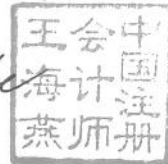 中国注册
会计师
王海燕